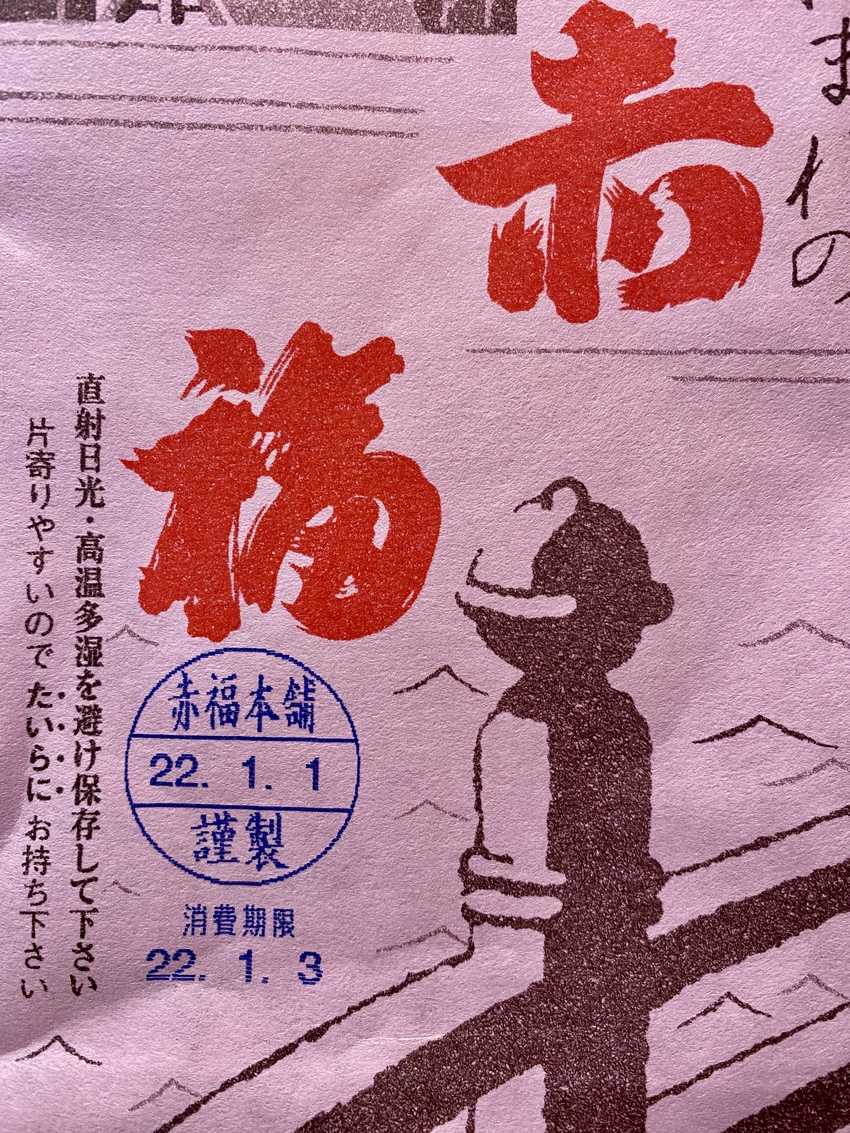 赤福
直射日光・高温多湿を避け保存して下さい
片寄りやすいのでたいらにお持ち下さい
赤福本舗
22. 1. 1
謹製
消費期限
22. 1. 3